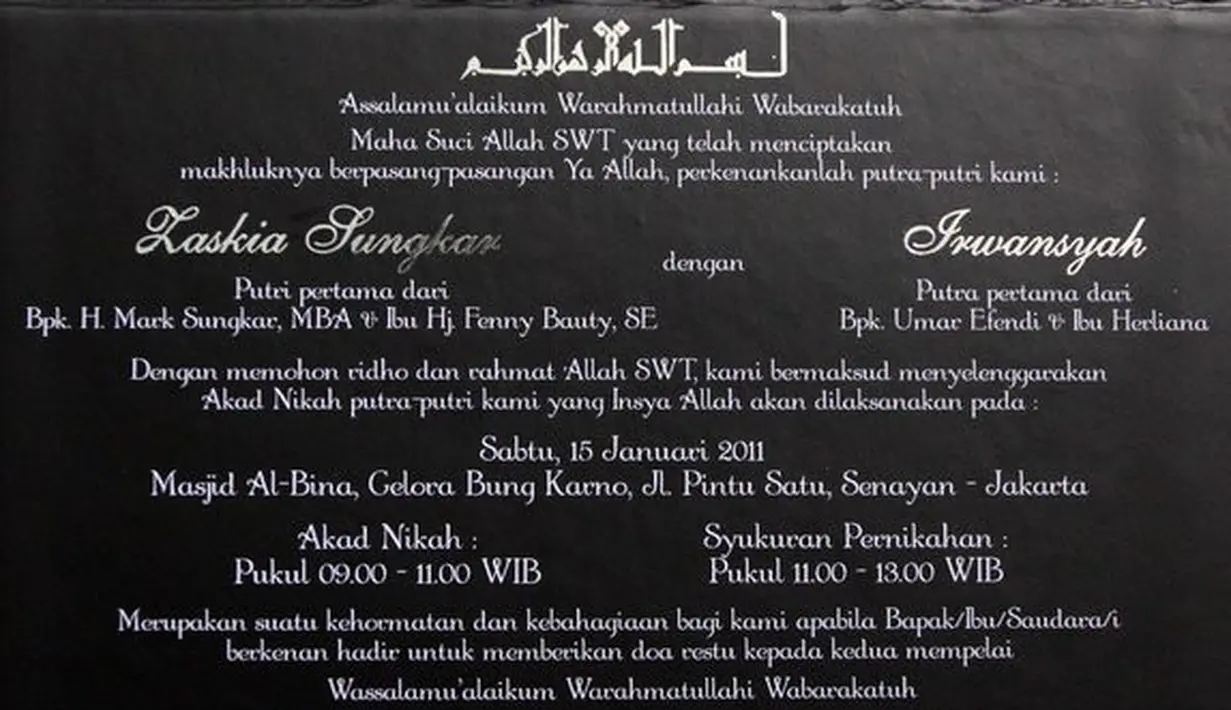 بسم الله الرحمن الرحيم
Assalamu'alaikum Warahmatullahi Wabarakatuh
Maha Suci Allah SWT yang telah menciptakan
makhluknya berpasang-pasangan Ya Allah, perkenankanlah putra-putri kami :
Zaskia Sungkar
dengan
Irwansyah
Putri pertama dari
Bpk. H. Mark Sungkar, MBA & Ibu Hj. Fenny Bauty, SE
Putra pertama dari
Bpk. Umar Efendi & Ibu Herliana
Dengan memohon ridho dan rahmat Allah SWT, kami bermaksud menyelenggarakan
Akad Nikah putra-putri kami yang Insya Allah akan dilaksanakan pada :
Sabtu, 15 Januari 2011
Masjid Al-Bina, Gelora Bung Karno, Jl. Pintu Satu, Senayan - Jakarta
Akad Nikah :
Pukul 09.00 - 11.00 WIB
Syukuran Pernikahan :
Pukul 11.00 - 13.00 WIB
Merupakan suatu kehormatan dan kebahagiaan bagi kami apabila Bapak/Ibu/Saudara/i
berkenan hadir untuk memberikan doa restu kepada kedua mempelai
Wassalamu'alaikum Warahmatullahi Wabarakatuh